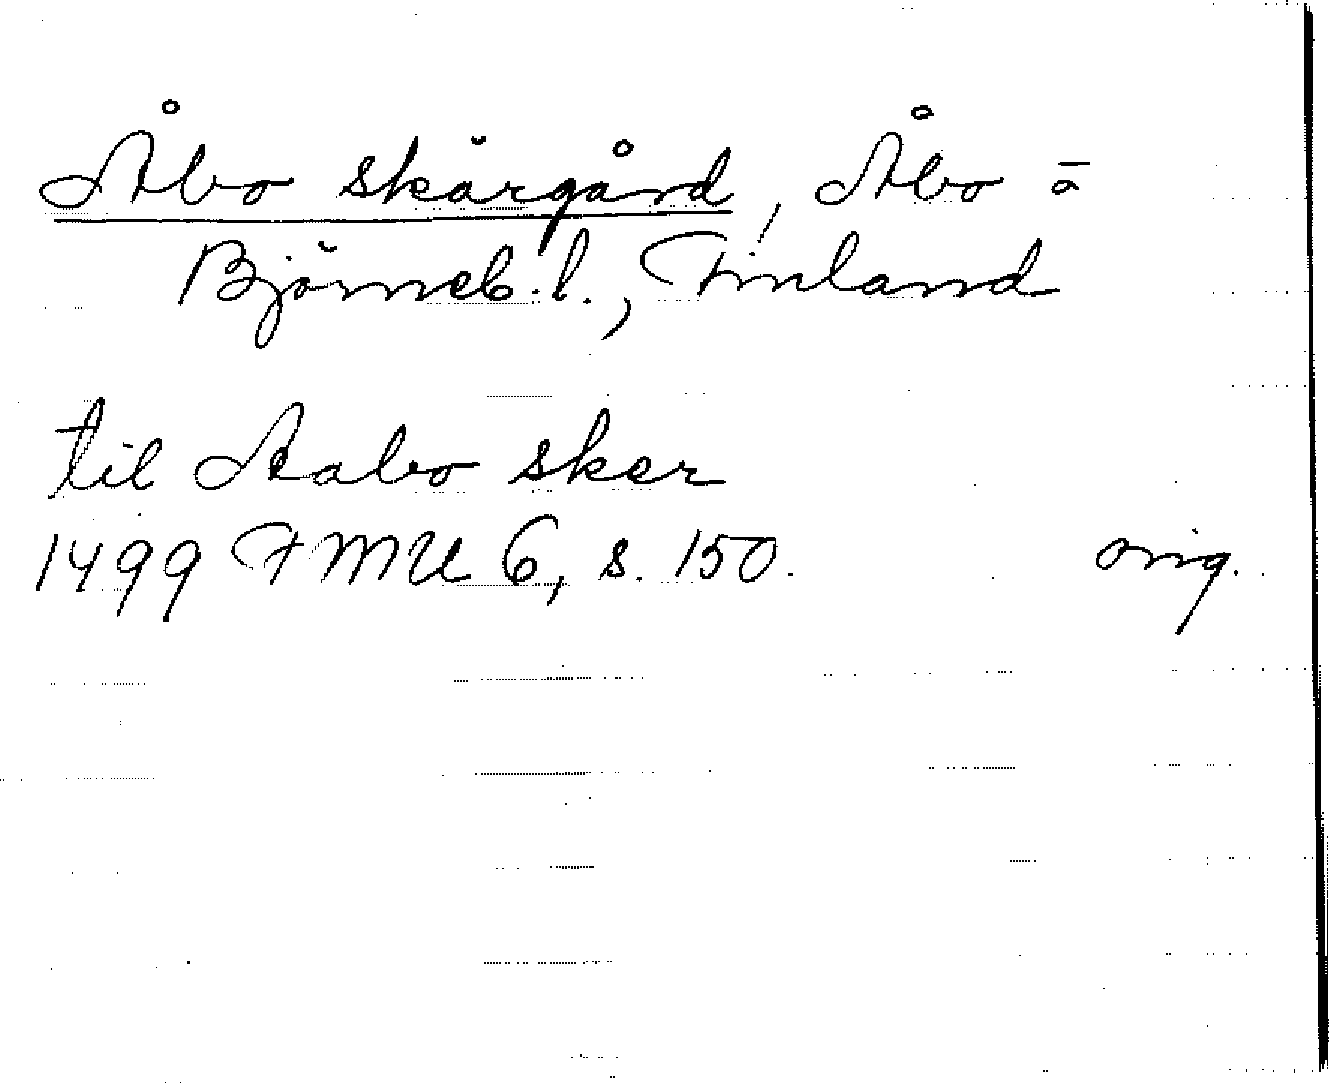 Åbo skärgård, Åbo o
Björneb. l., Finland
til Aabo sker
1499 FMU 6, s. 150. orig.